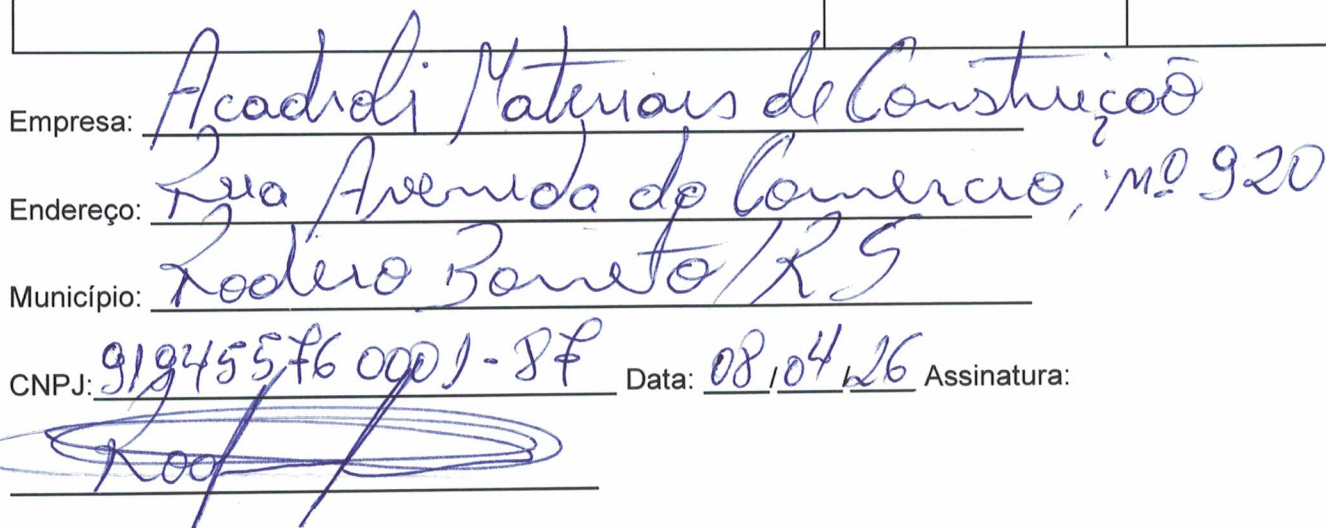 Empresa: Acadroli Materiais de Construção
Endereço: Rua Avenida do Comercio, nº 920
Município: Rodeio Bonito/RS
CNPJ: 91945576 0001-87 Data: 08/04/26 Assinatura: